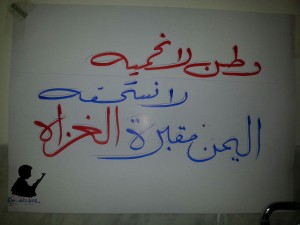 وطن لا نحميه
لا نستحقه
اليمن مقبرة الغزاه